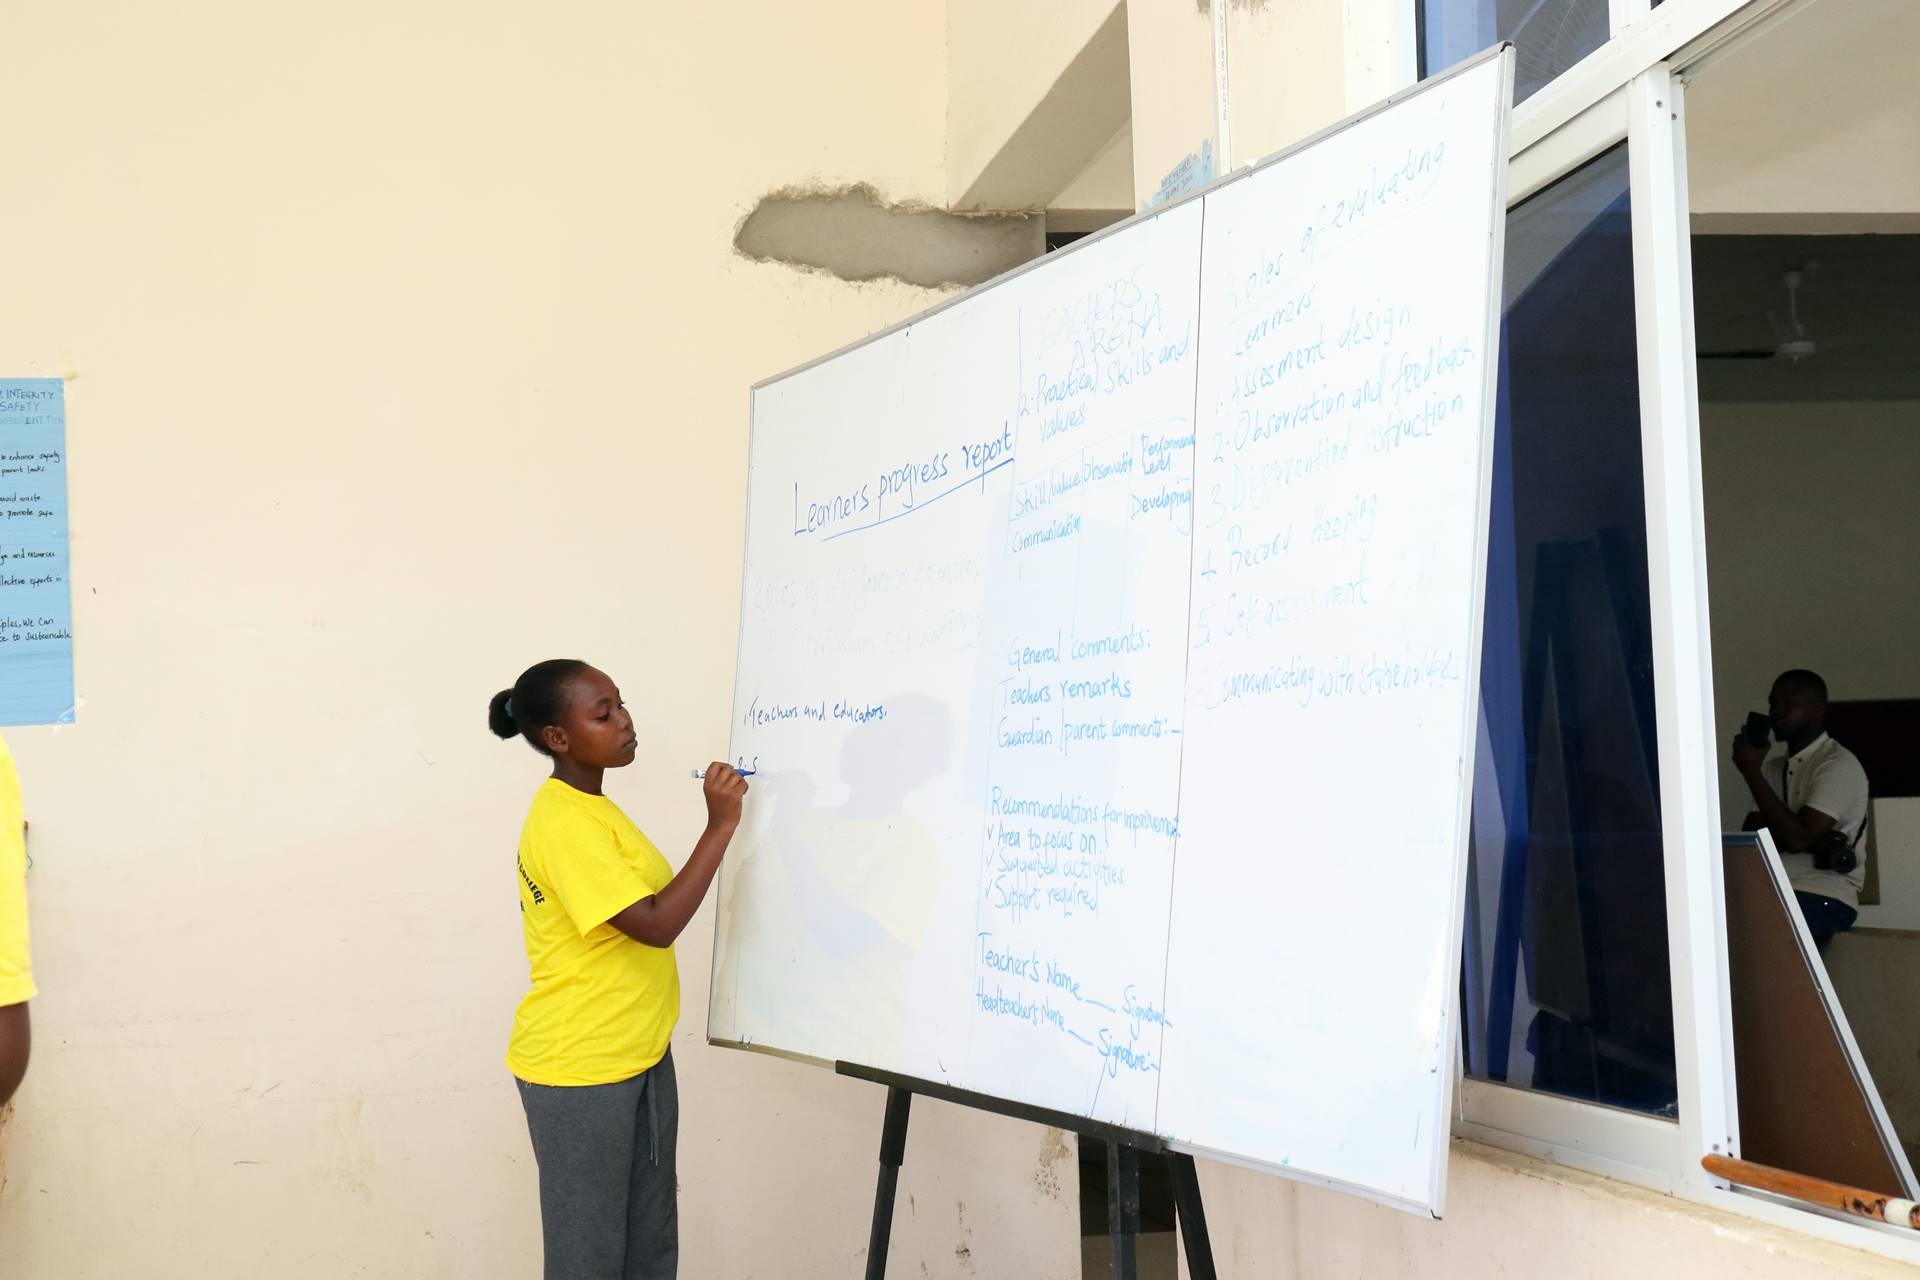 INTEGRITY
SAFETY
to enhance safety
parent leaks
avoid waste
to promote safe
and resources
efforts in
We Can
to sustainable
COLLEGE
Learners progress report
1. Teachers and educators.
2. S
TEACHERS
ARENA
2. Practical skills and
values
Skill/value Observation Performance
Level
Communication Developing
General comments:
Teachers remarks
Guardian/parent comments:-
Recommendations for improvement
✓ Area to focus on.
✓ Suggested activities
✓ Support required
Teacher's Name ___ Signature:-
Headteacher's Name ___ Signature:-
Roles of evaluating
Learners.
1. Assessment design
2. Observation and feedback
3. instruction
4. Record keeping
5. Self assessment
Communicating with stakeholders